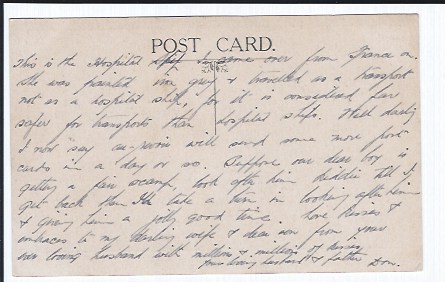 POST CARD.
This is the Hospital Ship I came over from France on.
She was painted in grey & travelled as a transport
not as a hospital ship, for it is considered far
safer for transports than hospital ships. Well darling
I not say au-revoir will send some more post
cards in a day or so. Suppose our dear boy is
getting a fair scamp, look after him kiddie till I
get back then I'll take a turn in looking after him
& giving him a jolly good time. Love kisses &
embraces to my darling wife & dear son from your
own loving husband with millions & millions of kisses
Your loving husband & father Don.